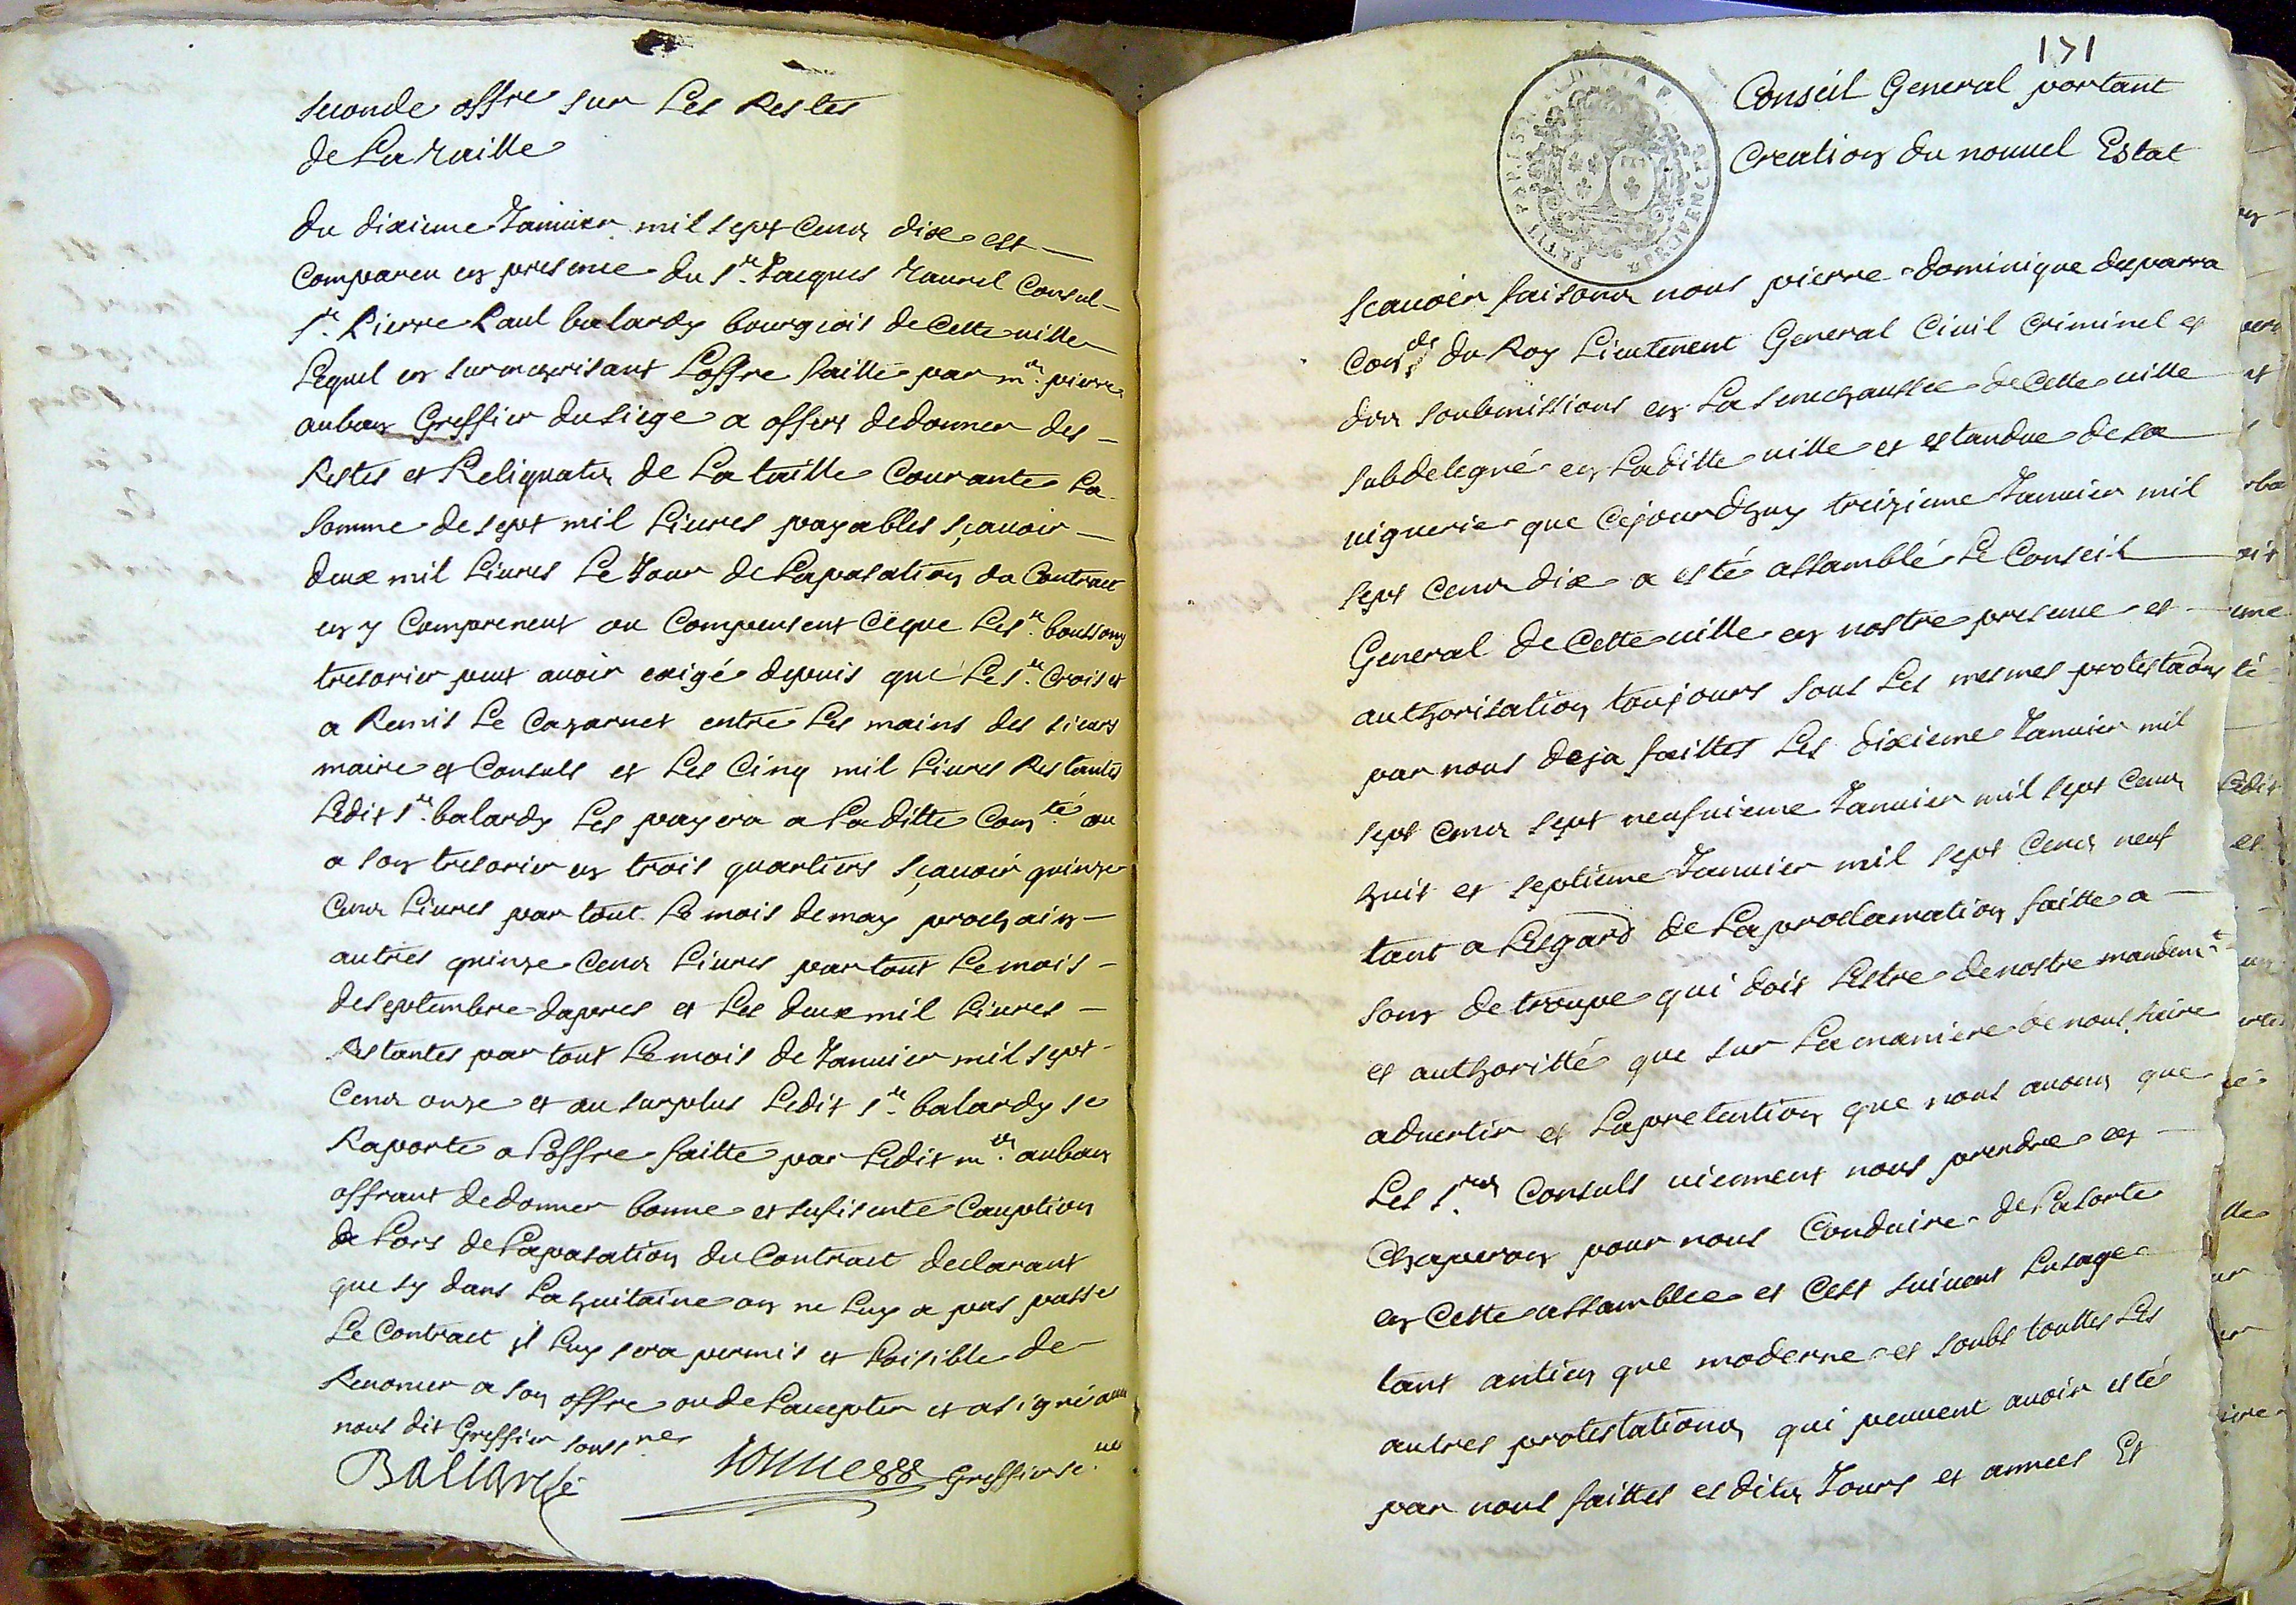 seconde offre sur Les Restes
de La taille
du dixieme Januier mil sept Cens dix est
Compareu en presence du Sr. Jacques Maurel Consul
Sr. Pierre Paul balardy bourgeois de Cette uille
Lequel en surencherissant Loffre faitte par me. pierre
auban Greffier du siege a offert de donner des
Restes et Reliquats de La taille Courante La
somme de sept mil Liures payables sçauoir
deux mil Liures Le Jour de La pasation du Contract
en y Comprenent ou Compensent Ce que Le sr. boussony
tresorier peut auoir exigé depuis que Le sr. Croiset
a Remis Le Cazarnet entre Les mains des sieurs
maire et Consuls et Les Cinq mil Liures Restantes
Ledit sr. balardy Les payera a La ditte Comté. ou
a son tresorier en trois quartiers sçauoir quinze
Cens Liures par tout Le mois de may prochain
autres quinze Cens Liures par tout Le mois
de septembre dapres et Les deux mil Liures
Restantes par tout Le mois de Januier mil sept
Cens onze et au surplus Ledit sr. balardy se
Raporte a Loffre faitte par Ledit me. auban
offrant de donner bonne et sufisente Cauption
de Lors de La pasation du Contract declarant
que sy dans La huitaine on ne Luy a pas passé
Le Contract il Luy sera permis et Loisible de
Renoncer a son offre ou de Laccepter et a signé auec
nous dit Greffier soussnes
Ballardi Greffier
171
Conseil General portant
Creation du nouuel Estat
Scauoir faisons nous pierre dominique desparra
Conser du Roy Lieutenent General Ciuil Criminel et
des soubmissions en La senechaussee de Cette uille
subdelegué en La ditte uille et estandue de sa
uiguerie que Cejourdhuy treizieme Januier mil
sept Cens dix a esté assamblé Le Conseil
General de Cette uille en nostre presence et
authorisation toujours sous Les mesmes protestaons
par nous deja faittes Les dixieme Januier mil
sept Cens sept neufuieme Januier mil sept Cens
huit et septieme Januier mil sept Cens neuf
tant a Lesgard de La proclamation faitte a
son de trompe qui doit Lestre de nostre mandemt.
et authoritté que sur La maniere de nous faire
aduertir et La pretention que nous auons que
Les srs Consuls uiennent nous prendre en
Chaperon pour nous Conduire de La sorte
en Cette assamblee et Cest suiuent Lusage
tant antien que moderne et soubs touttes Les
autres protestations qui peuuent auoir esté
par nous faittes esdits Jours et annees Et